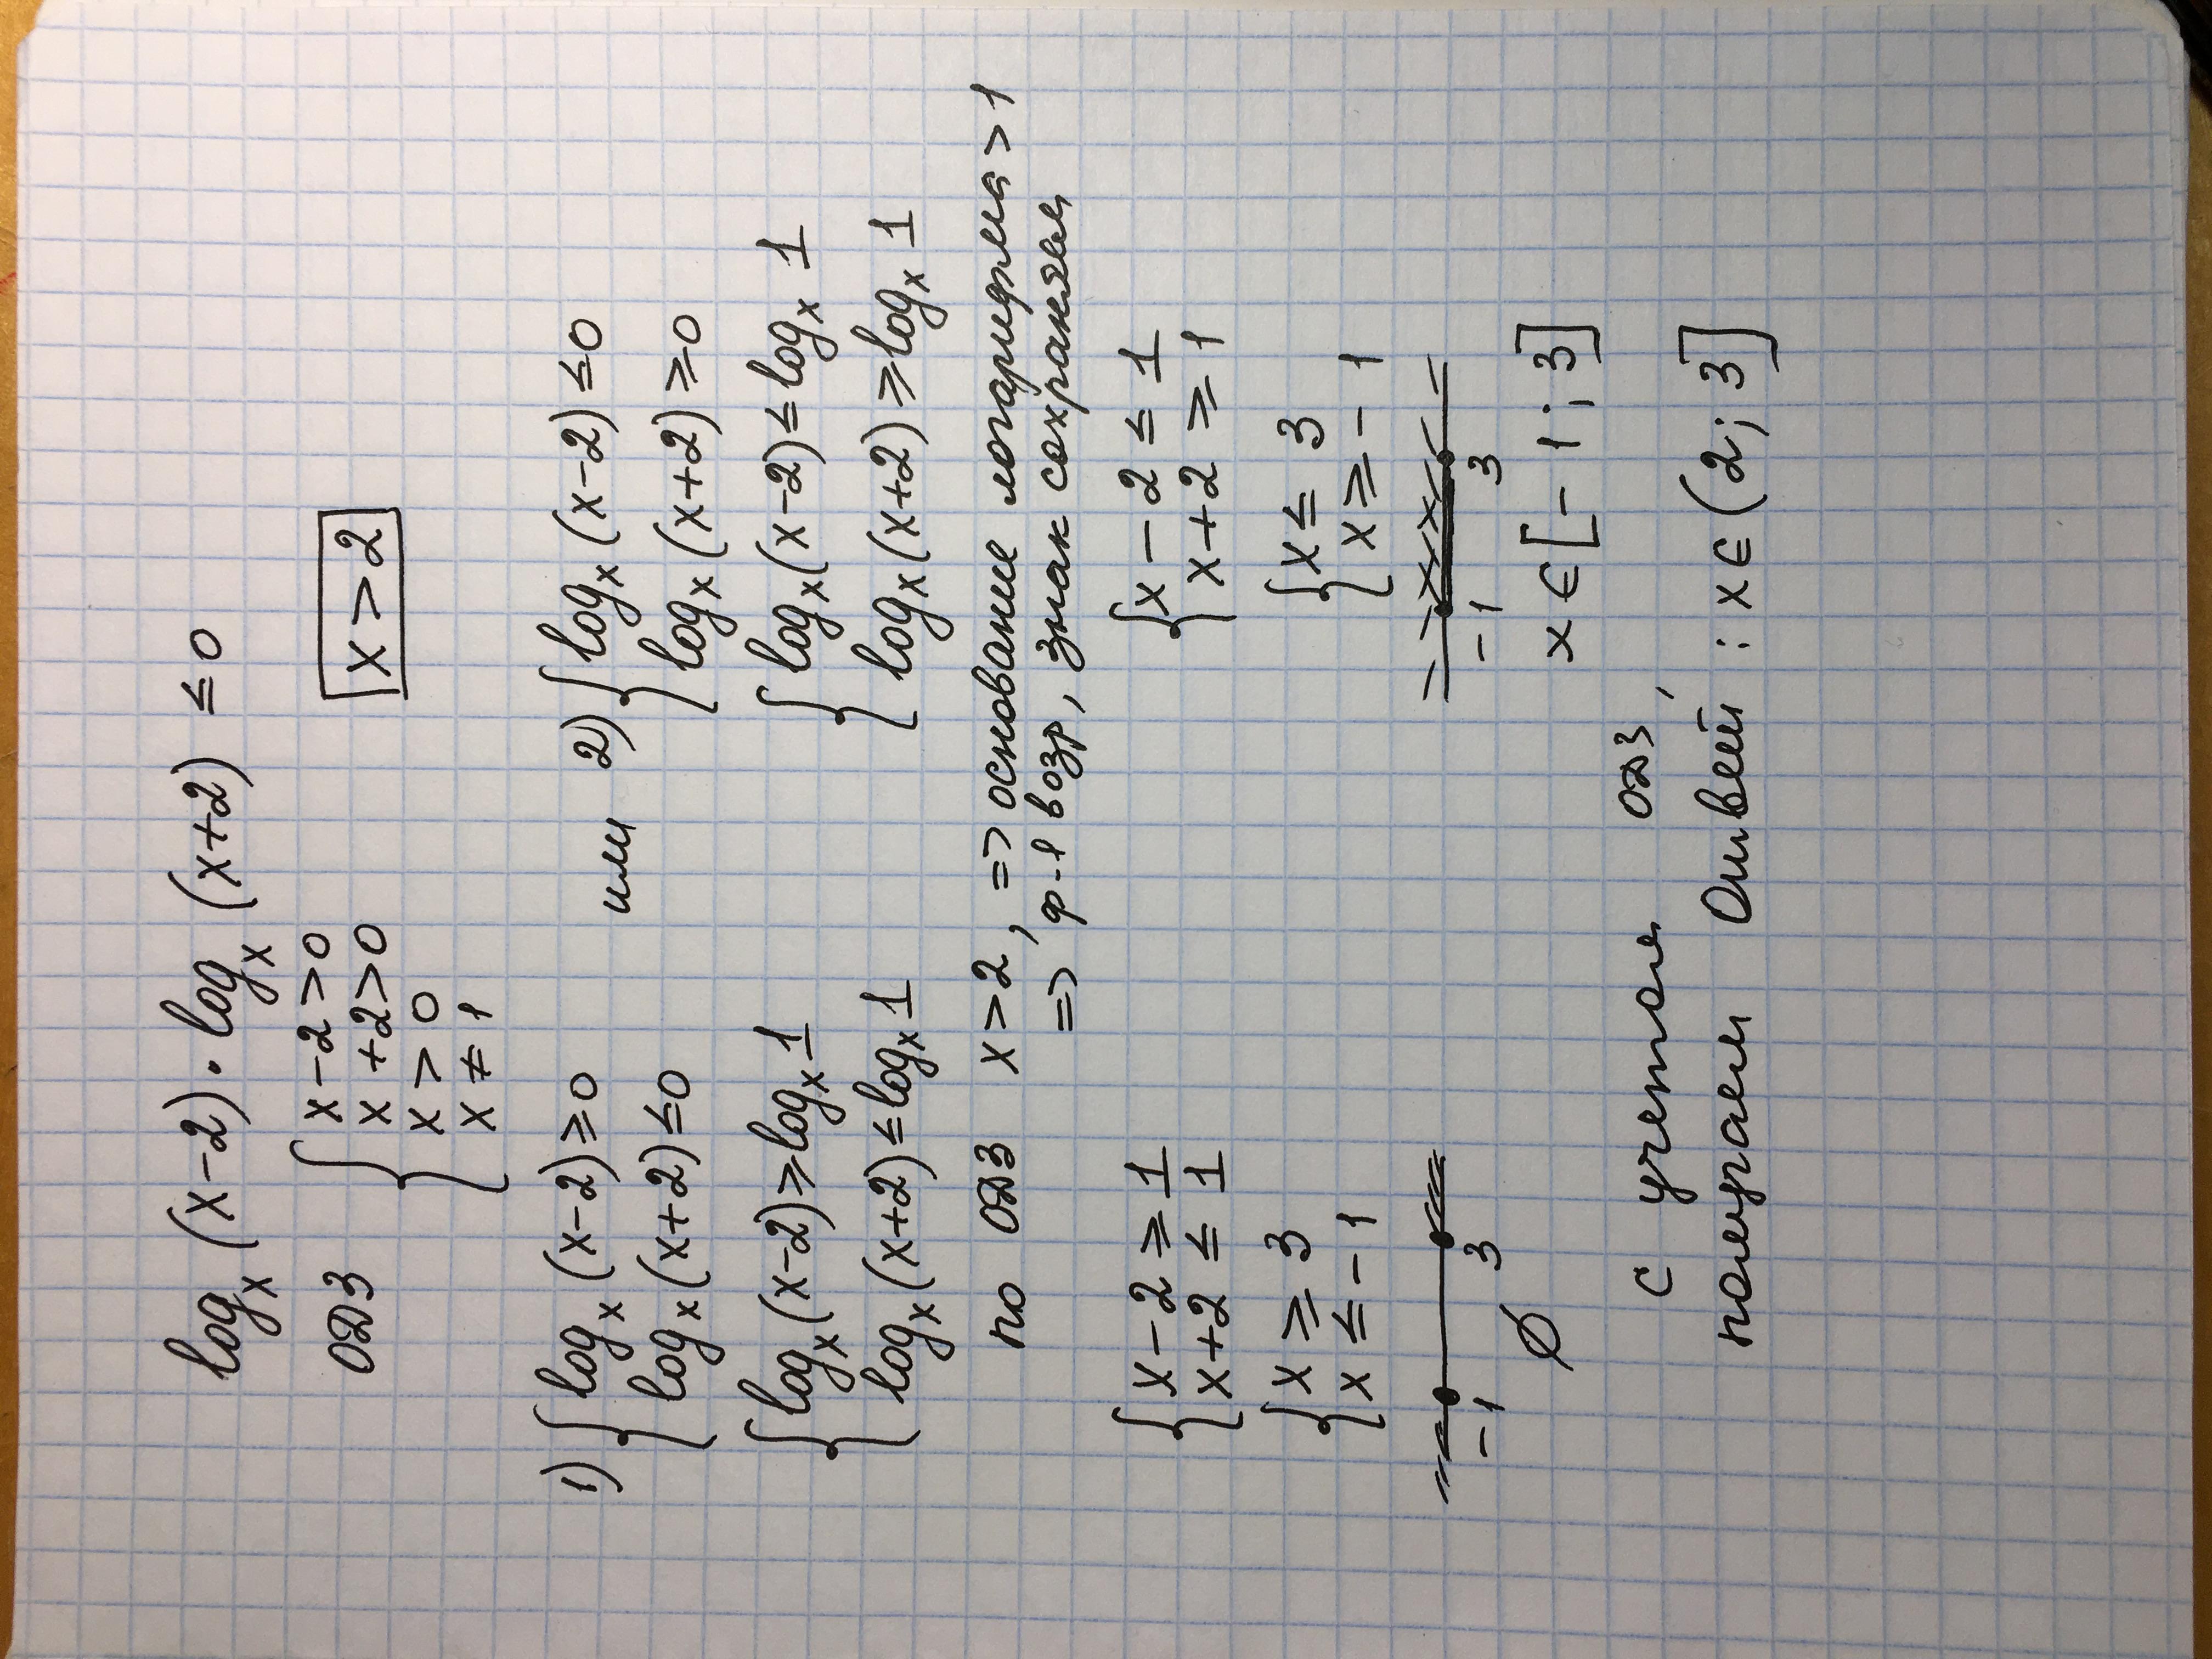 logₓ(x-2)·logₓ(x+2) ≤ 0
ОДЗ { x-2>0
x+2>0
x>0
x≠1
x>2
1) { logₓ(x-2)≥0
logₓ(x+2)≤0
или 2) { logₓ(x-2)≤0
logₓ(x+2)≥0
{ logₓ(x-2)≥logₓ1
logₓ(x+2)≤logₓ1
{ logₓ(x-2)≤logₓ1
logₓ(x+2)≥logₓ1
по ОДЗ x>2, => основание логарифма>1
=> ф-я возр, знак сохраняем
{ x-2≥1
x+2≤1
{ x-2≤1
x+2≥1
{ x≥3
x≤-1
{ x≤3
x≥-1
-1 3
-1 3
∅
x∈[-1;3]
С учетом ОДЗ,
получаем Ответ: x∈(2;3]